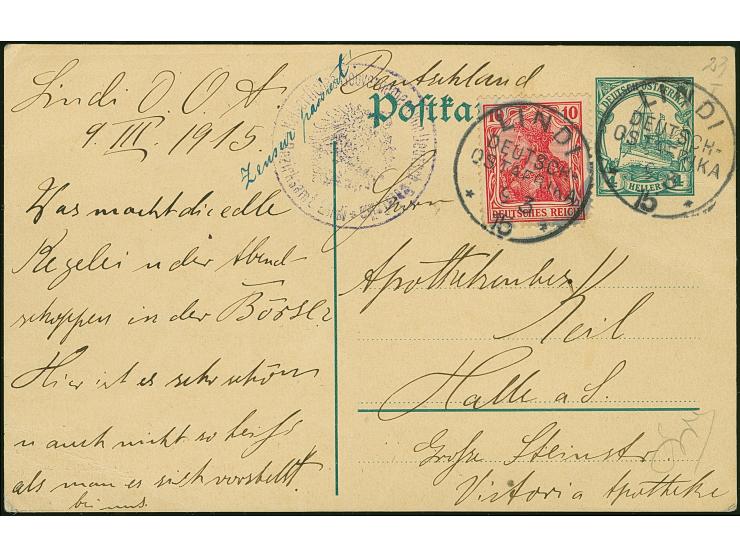 Lindi D. O. A.
9. III. 1915.
Zensur passiert!
Was macht die edle
Kegelei u der Abend
schoppen in der Börse?
Hier ist es sehr schön
u auch nicht so heiß
als man es sich vorstellt
bei uns.
Deutschland
Postkar
Herrn
Apothekenbes.
Keil
Halle a. S.
Große Steinstr
Victoria Apotheke
10 10
DEUTSCHES REICH
LINDI
DEUTSCH-
OSTAFRIKA
9 3
15
* *
DEUTSCH-OSTAFRIKA
HELLER
LINDI
DEUTSCH-
OSTAFRIKA
3
15
*